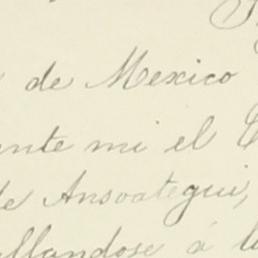 de Mexico
ante mi el
de Ansoategui,
allandose á l